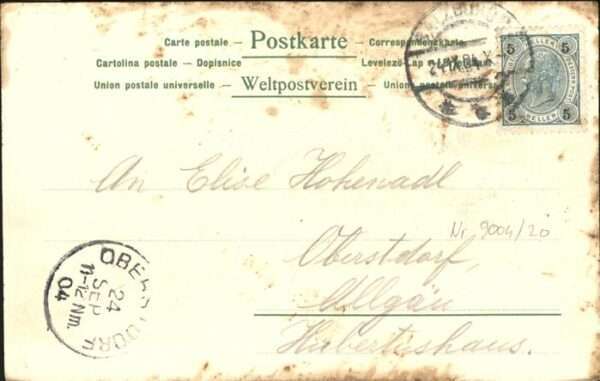 Carte postale – Postkarte – Correspondenzkarte
Cartolina postale – Dopisnice Levelező-Lap
Union postale universelle – Weltpostverein – Union postale universelle
5 5
HELLER
5 5
An Elise Hohenadl
Nr. 9004/20
Oberstdorf,
Allgäu
Hubertushaus.
OBERSTDORF
24
SEP
11-12 Nm.
04